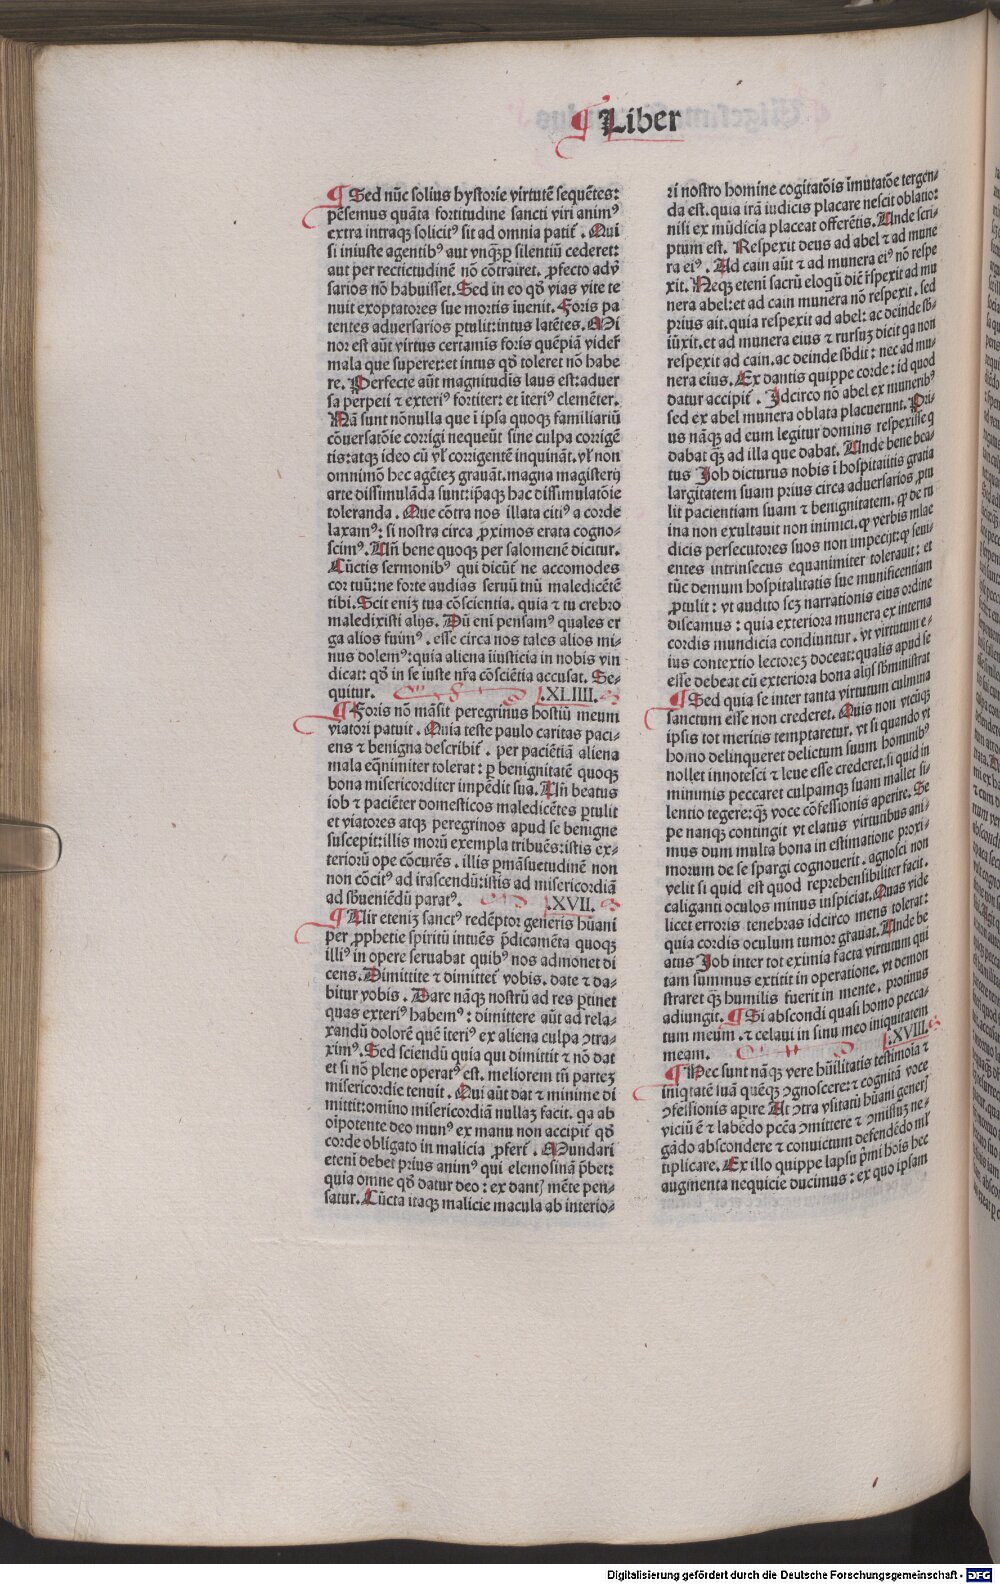 ¶ Liber
¶ Sed nūc solius hystorie virtutē sequētes:
pēsemus quāta fortitudine sancti viri animꝰ
extra intraqꝫ solicitꝰ sit ad omnia patiẽ. Qui
si iniuste agentibꝰ aut vnqꝫ ꝑ silentiū cederet:
aut per rectictudinē nō cōtrairet. ꝓfecto adṽ
sarios nō habuisset. Sed in eo qō vias vite te
nuit exoptatores sue mortis īuenit. Foris pa
tentes aduersarios ꝑtulit: intus latētes. Mi
nor est aūt virtus certamis foris quēpiā viderẽ
mala que superet: et intus qō toleret nō habe
re. Perfecte aūt magnitudis laus est: aduer
sa perpeti ⁊ exteriꝰ fortiter: et īteriꝰ clemēter.
Nā sunt nōnulla que ī ipsa quoqꝫ familiariū
cōuersatōie corrigi nequeūt sine culpa corrigē
tis: atqꝫ ideo cū vl̓ corrigentē inquināt. vl̓ non
omnimō hec agētez grauāt. magna magisterij
arte dissimulāda sunt: ip̄aqꝫ hac dissimulatōie
toleranda. Que cōtra nos illata citiꝰ a corde
laxamꝰ: si nostra circa ꝓximos erata cogno-
scimꝰ. Uñ bene quoqꝫ per salomenē dicitur.
Cūctis sermonibꝰ qui dicūt̃ ne accomodes
cor tuū: ne forte audias seruū tuū maledicētē
tibi. Scit eniꝫ tua cōscientia. quia ⁊ tu crebro
maledixisti alijs. Dū enī pensamꝰ quales er
ga alios fuimꝰ. esse circa nos tales alios mi-
nus dolemꝰ: quia aliena īiusticia in nobis vin
dicat: qō in se iuste nr̄a cōsciētia accusat. Se-
quitur. .XLIIII.
¶ Foris nō māsit peregrinus hostiū meum
viatori patuit. Quia teste paulo caritas paci-
ens ⁊ benigna describit̃. per paciētiā aliena
mala eqñimiter tolerat: ꝑ benignitatē quoqꝫ
bona misericorditer impēdit sua. Uñ beatus
iob ⁊ paciēter domesticos maledicētes ꝑtulit
et viatores atqꝫ peregrinos apud se benigne
suscepit: illis morū exempla tribuēs: istis ex-
teriorū ope cōcurēs. illis ꝑ māsuetudinē non
non cōcitꝰ ad irascendū: istis ad misericordiā
ad sb̄ueniēdū paratꝰ. .XVII.
¶ Alir eteniꝫ sanctꝰ redēptor generis hūani
per ꝓphetie spiritū intuēs p̄dicamēta quoqꝫ
illiꝰ in opere seruabat quibꝰ nos admonet di
cens. Dimittite ⁊ dimittet̃ vobis. date ⁊ da-
bitur vobis. Dare nāqꝫ nostrū ad res ꝑtinet
quas exteriꝰ habemꝰ: dimittere aūt ad rela-
xandū dolorē quē īteriꝰ ex aliena culpa ↄtra-
ximꝰ. Sed sciendū quia qui dimittit ⁊ nō dat
et si nō plene operatꝰ est. meliorem tñ partez
misericordie tenuit. Qui aūt dat ⁊ minime di
mittit: omīno misericordiā nullaꝫ facit. qa ab
oīpotente deo munꝰ ex manu non accipit̃ qō
corde obligato in malicia ꝓfert̃. Mundari
etenī debet prius animꝰ qui elemosinā p̄bet:
quia omne qō datur deo: ex dantꝭ mēte pen-
satur. Cūcta itaqꝫ malicie macula ab interio-
ri nostro homine cogitatōis īmutatōe tergen-
da est. quia irā iudicis placare nescit oblatio:
nisi ex mūdicia placeat offerētis. Unde scri-
ptum est. Respexit deus ad abel ⁊ ad mune
ra eiꝰ. Ad cain aūt ⁊ ad munera eiꝰ nō respe
xit. Neqꝫ eteni sacrū eloqū diē r̄spexit ad mu
nera abel: et ad cain munera nō respexit. sed
prius ait. quia respexit ad abel: ac deinde sb̄-
iūxit. et ad munera eius ⁊ rursuꝫ dicit qa non
respexit ad cain. ac deinde sb̄dit: nec ad mu-
nera eius. Ex dantis quippe corde: id quod
datur accipit̃. Idcirco nō abel ex muneribꝰ
sed ex abel munera oblata placuerunt. Pri
us nāqꝫ ad eum legitur dominus respexisse q̄
dabat qꝫ ad illa que dabat. Unde bene bea-
tus Job dicturus nobis ī hospitalitis gratia
largitatem suam prius circa aduersarios ꝓtu
lit pacientiam suam ⁊ benignitatem. ꝙ de ru
ina non exultauit non inimici. ꝙ verbis mlae
dicis persecutores suos non impecijt: ꝙ seui-
entes intrinsecus equanimiter tolerauit: et
tūc demum hospitalitatis sue munificentiam
ꝓtulit: vt audito scꝫ narrationis eius ordine
discamus: quia exteriora munera ex interna
cordis mundicia condiuntur. vt virtutum e-
ius contextio lectoreꝫ doceat: qualis apud se
esse debeat cū exteriora bona alijs sb̄ministrat
¶ Sed quia se inter tanta virtutum culmina
sanctum esse non crederet. Quis non vtcūqꝫ
ipsis tot meritis temptaretur. vt si quando vt
homo delinqueret delictum suum hominibꝰ
nollet innotesci ⁊ leue esse crederet. si quid in
minimis peccaret culpamqꝫ suam mallet si-
lentio tegere: qꝫ voce cōfessionis aperire. Se
pe nanqꝫ contingit vt elatus virtutibus ani-
mus dum multa bona in estimatione proxi-
morum de se spargi cognouerit. agnosci non
velit si quid est quod reprehensibiliter facit.
caliganti oculos minus inspiciat. Quas vide
licet erroris tenebras idcirco mens tolerat:
quia cordis oculum tumor grauat. Unde be
atus Job inter tot eximia facta virtutum qui
tam summus extitit in operatione. vt demon
straret qꝫ humilis fuerit in mente. protinus
adiungit. ¶ Si abscondi quasi homo pecca-
tum meum. ⁊ celaui in sinu meo iniquitatem
meam. .XVIII.
¶ Hec sunt nāqꝫ vere hūilitatis testimoīa ⁊
iniqtatē suā quēqꝫ ↄgnoscere: ⁊ cognitā voce
ↄfessionis apire At ↄtra vsitatū hūani generꝭ
viciū ē ⁊ labēdo pcc̄a ↄmittere ⁊ ↄmissuꝫ ne-
gādo abscondere ⁊ conuictum defendēdo ml̓
tiplicare. Ex illo quippe lapsu p̄mi hoīs hec
augmenta nequicie ducimus: ex quo ipsam
Digitalisierung gefördert durch die Deutsche Forschungsgemeinschaft - DFG